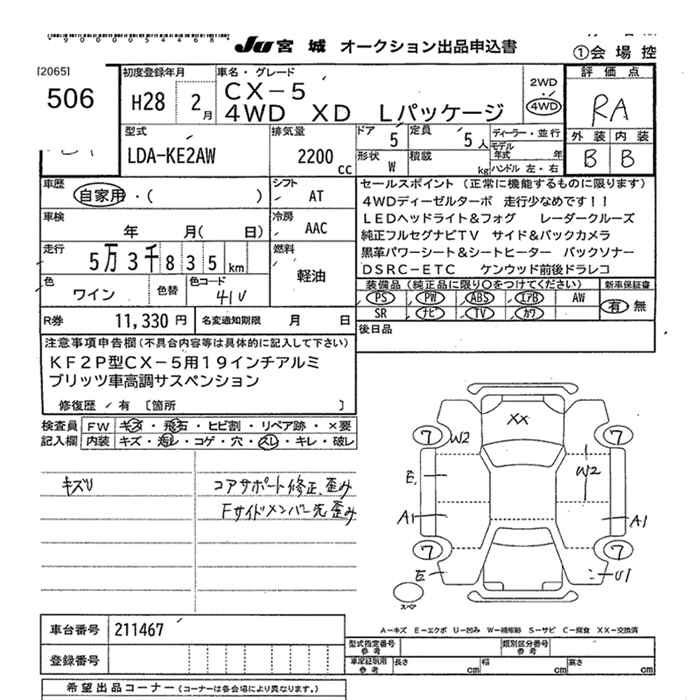 JU 宮城 オークション出品申込書
①会場控
[2065]
506
初度登録年月
H28 2月
車名・グレード
CX-5
4WD XD Lパッケージ
2WD
4WD
評価点
RA
外装 内装
B B
型式
LDA-KE2AW
排気量
2200 cc
ドア 5
定員 5人
形状 W
積載 kg
ディーラー・並行
モデル年式 年
ハンドル 左・右
車歴
自家用・( )
シフト
AT
車検
年 月( 日)
冷房
AAC
走行
5万3千835km
燃料
軽油
色
ワイン
色替
色コード
41V
R券 11,330円
名変通知期限 月 日
セールスポイント (正常に機能するものに限ります)
4WDディーゼルターボ 走行少なめです!!
LEDヘッドライト&フォグ レーダークルーズ
純正フルセグナビTV サイド&バックカメラ
黒革パワーシート&シートヒーター バックソナー
DSRC-ETC ケンウッド前後ドラレコ
装備品 (純正品に限り○をつけてください)
新車保証書
PS PW ABS エアB AW
SR ナビ TV カワ
有 無
後日品
注意事項申告欄(不具合内容等は具体的に記入して下さい)
KF2P型CX-5用19インチアルミ
ブリッツ車高調サスペンション
修復歴/有 [箇所 ]
検査員記入欄
FW キズ・飛石・ヒビ割・リペア跡・×要
内装 キズ・汚レ・コゲ・穴・スレ・キレ・破レ
キズり
コアサポート修正、歪み
Fサイドメンバー先歪み
XX
7 W2
7
W2
E
A1
A1
7
7
E
U1
スペア
A-キズ E-エクボ U-凹み W-補修跡 S-サビ C-腐食 XX-交換済
車台番号 211467
登録番号
型式指定番号 参考
類別区分番号 参考
車庫証明用 参考
長さ cm 幅 cm 高さ cm
希望出品コーナー (コーナーは各会場により異なります。)